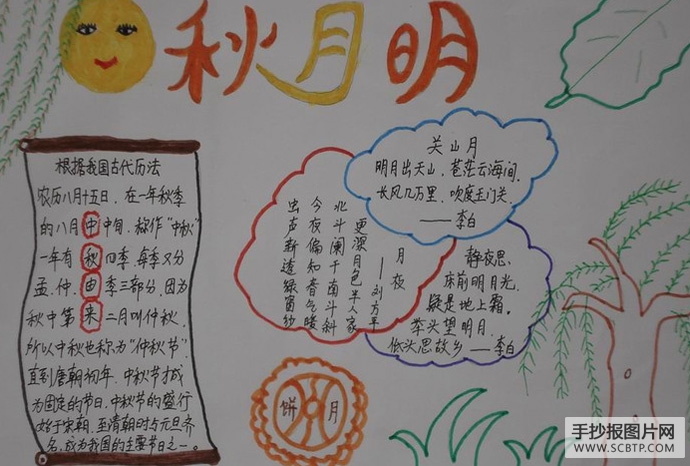 秋月明
根据我国古代历法
农历八月十五日，在一年秋季
的八月中中旬，称作"中秋"
一年有秋四季，每季又分
孟、仲、由季三部分，因为
秋中第来二月叫仲秋，
所以中秋也称为"仲秋节"
直到唐朝初年，中秋节才成
为固定的节日，中秋节的盛行
始于宋朝，至清朝时与元旦齐
名，成为我国的主要节日之一。
关山月
明月出天山，苍茫云海间，
长风几万里，吹度玉门关。
——李白
月夜
——刘方平
更深月色半人家
北斗阑干南斗斜
今夜偏知春气暖
虫声新透绿窗纱
静夜思，
床前明月光，
疑是地上霜。
举头望明月，
低头思故乡——李白
月饼
手抄报图片网
WWW.SCBTP.COM